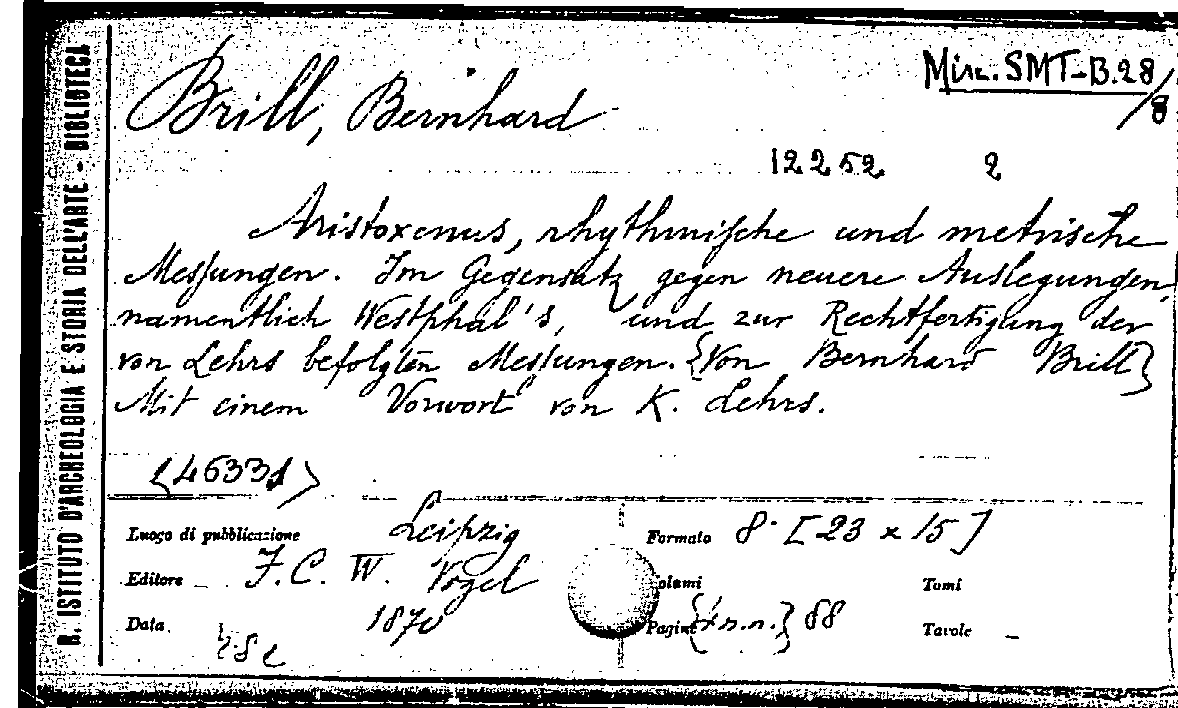 R. ISTITUTO D'ARCHEOLOGIA E STORIA DELL'ARTE - BIBLIOTECA
Misc. SMT-B.28/8
Brill, Bernhard
12252 2
Aristoxenus, rhythmische und metrische
Messungen. Im Gegensatz gegen neuere Auslegungen,
namentlich Westphal's, und zur Rechtfertigung der
von Lehrs befolgten Messungen. {Von Bernhard Brill}
Mit einem Vorwort von K. Lehrs.
<46331>
Luogo di pubblicazione Leipzig Formato 8° [23 x 15]
Editore F.C.W. Vogel Volumi Tomi
Data 1870 Pagine 88 Tavole -